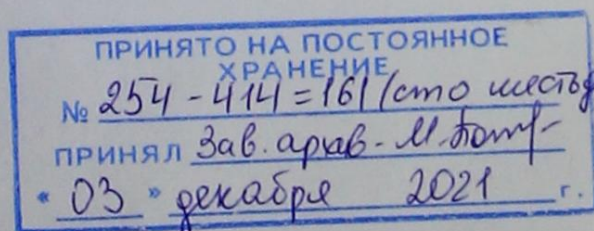 ПРИНЯТО НА ПОСТОЯННОЕ
ХРАНЕНИЕ
№ 254 - 414 = 161 (сто шестьд
ПРИНЯЛ Зав. архив -
« 03 » декабря 2021 г.